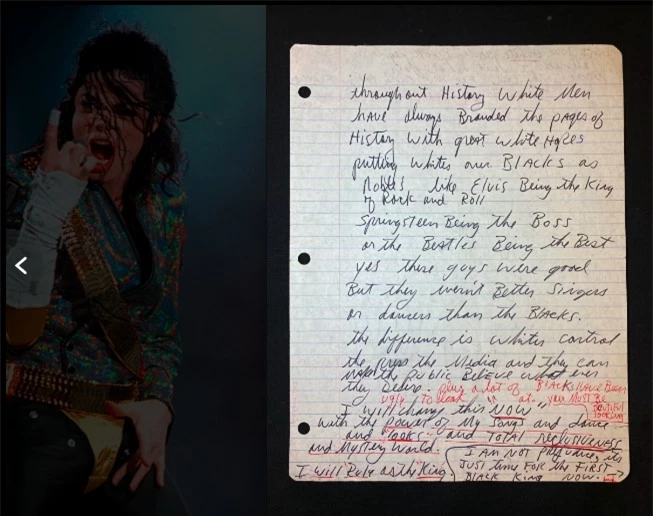 throughout History White Men
HAVE always Branded the pages of
History with great white Hopes
putting whites over BLACKS as
Nobles like Elvis Being the King
of Rock and Roll
Springsteen Being the Boss
or the Beatles Being the Best
yes these guys were good
But they weren't Better Singers
or dancers than the BLACKS.
the difference is whites control
the press the Media and they can
MAKE the public Believe what ever
they Desire. plus a lot of BLACKS HAVE Been
ugly to look at. you MUST Be
BEAUTIFUL looking
I will change this NOW
with the power of My songs and dance
and looks and TOTAL reclusiveness
and Mystery World.
I will Rule as the King
I AM NOT prejudice, its
JUST time FOR the FIRST
BLACK King NOW.